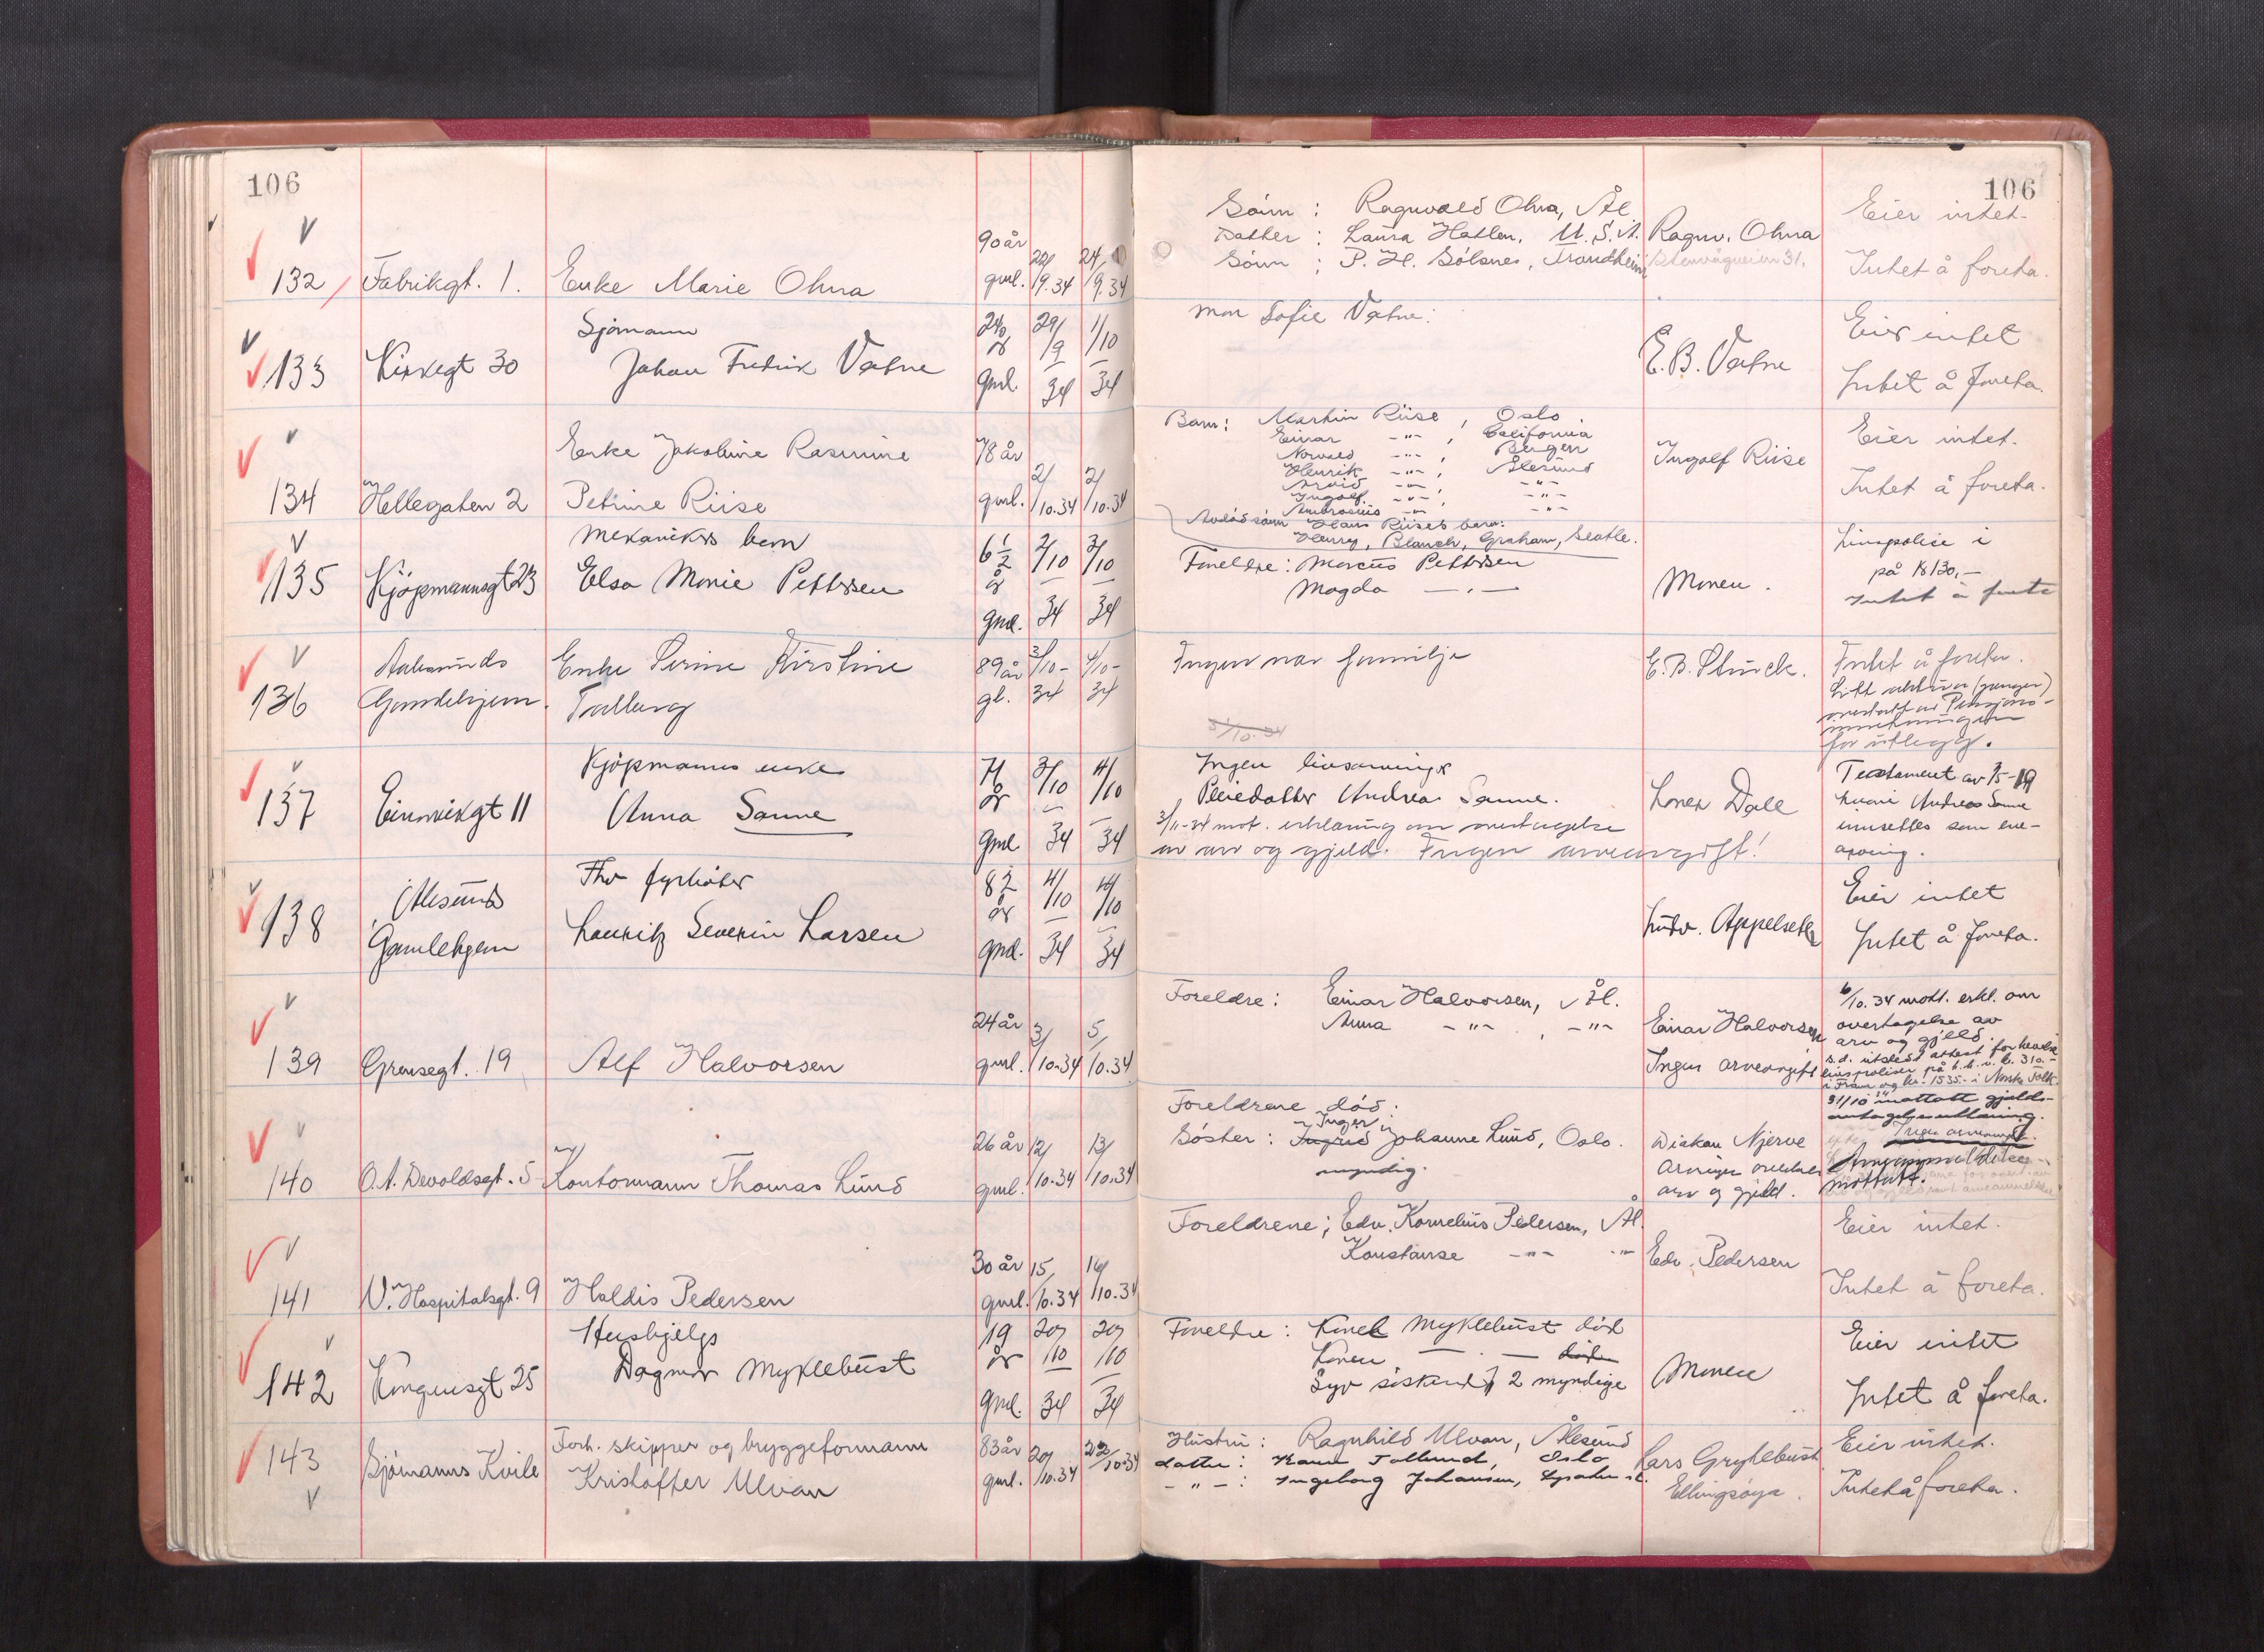 106
106
132 Fabrikgt. 1. Enke Marie Ohna 90 år gml. 22/9.34 24/9.34
Sönn : Ragnvald Ohna, Ål.
Datter : Laura Hatlen, U.S.A.
Sönn : P. H. Sölsnes, Trondheim
Ragnv. Ohna
Stenvågveien 31.
Eier intet.
Intet å foreta.
133 Kirkegt 30 Sjömann
Johan Fredrik Vatne
24 år gml. 29/9 34 1/10 34
Mor Sofie Vatne.
E. B. Vatne
Eier intet
Intet å foreta.
134 Hellegaten 2 Enke Jakobine Rasmine
Petrine Riise
78 år gml. 2/10.34 2/10.34
Barn: Martin Riise, Oslo.
Einar -"-, California
Norvald -"-, Bergen
Henrik -"-, Ålesund
Arvid -"-, -"-
Ingolf -"-, -"-
Ambrosius -"- -"-
Avdød sönn Hans Riises barn:
Henry, Blanch, Graham, Seatle.
Ingolf Riise
Eier intet.
Intet å foreta.
135 Kjöpmannsgt 23 Mekanikers barn
Elsa Marie Pettersen
6 1/2 år gml. 2/10 34 3/10 34
Foreldre: Marcus Pettersen
Magda — . —
Moren.
Livspolise i
på kr 130,-
Intet å foreta
136 Aalesunds
Gamlehjem. Enke Perine Kirstine
89 år gl. 3/10-34 4/10-34
Ingen nær familje
5/10.34
E. B. Stück.
Intet å foreta.
for utlegg.
137 Einarvikgt 11 Kjöpmanns enke
Anna Sanne
71 år gml 3/10 34 4/10 34
Ingen livsarvinger
Pleiedatter Andrea Sanne.
3/11-34 mot. erklæring om overtagelse
av arv og gjeld. Ingen arveavgift!
Lorex Dale
Testament av 7/5-19
hvori Andrea Sanne
innsettes som ene-
arving.
138 Ålesunds
Gamlehjem Fhv fyrböter
Lauritz Severin Larsen
82 år gml. 4/10 34 4/10 34
Ludv. Appelseth
Eier intet
Intet å foreta.
139 Grensegt. 19 Alf Halvorsen
24 år gml. 3/10.34 5/10.34
Foreldre: Einar Halvorsen, Ål.
Anna -"- , -"-
Einar Halvorsen
Ingen arveavgift
6/10.34 mott. erkl. om
overtagelse av
arv og gjeld.
s.d. utstedt attest for hevelse
i Fram og kr. 1535.- i Norske Folk.
140 O. A. Devoldsgt. 5 Kontormann Thomas Lund
26 år gml. 12/10.34 13/10.34
Foreldrene död.
Inger
Söster: Ingrid Johanne Lund, Oslo.
myndig.
Diakon Njerve
Arvingen overtar
arv og gjeld.
31/10 34 mottatt gjelds-
overtagelseserklæring.
Ingen arveavgift.
mottatt.
141 V. Hospitalsgt. 9 Haldis Pedersen
30 år gml. 15/10.34 16/10.34
Foreldrene; Edv. Kornelius Pedersen, Ål.
Konstanse -"- -"-
Edv. Pedersen
Eier intet.
Intet å foreta.
142 Kongensgt 25 Hushjelp
Dagmar Myklebust
19 år gml. 20/10 34 20/10 34
Foreldre : Karel Myklebust död
Karen — . — död
Syv söskend, 2 myndige
Moren
Eier intet
Intet å foreta.
143 Sjömanns Kvile Forh. skipper og bryggeformann
Kristoffer Ulvan
83 år gml. 20/10.34 22/10.34
Hustru : Ragnhild Ulvan, Ålesund
datter: Karen Tollund, Oslo
-"-: Ingeborg Johansen,
Lars Gryttebust
Ellingsöya.
Eier intet.
Intet å foreta.